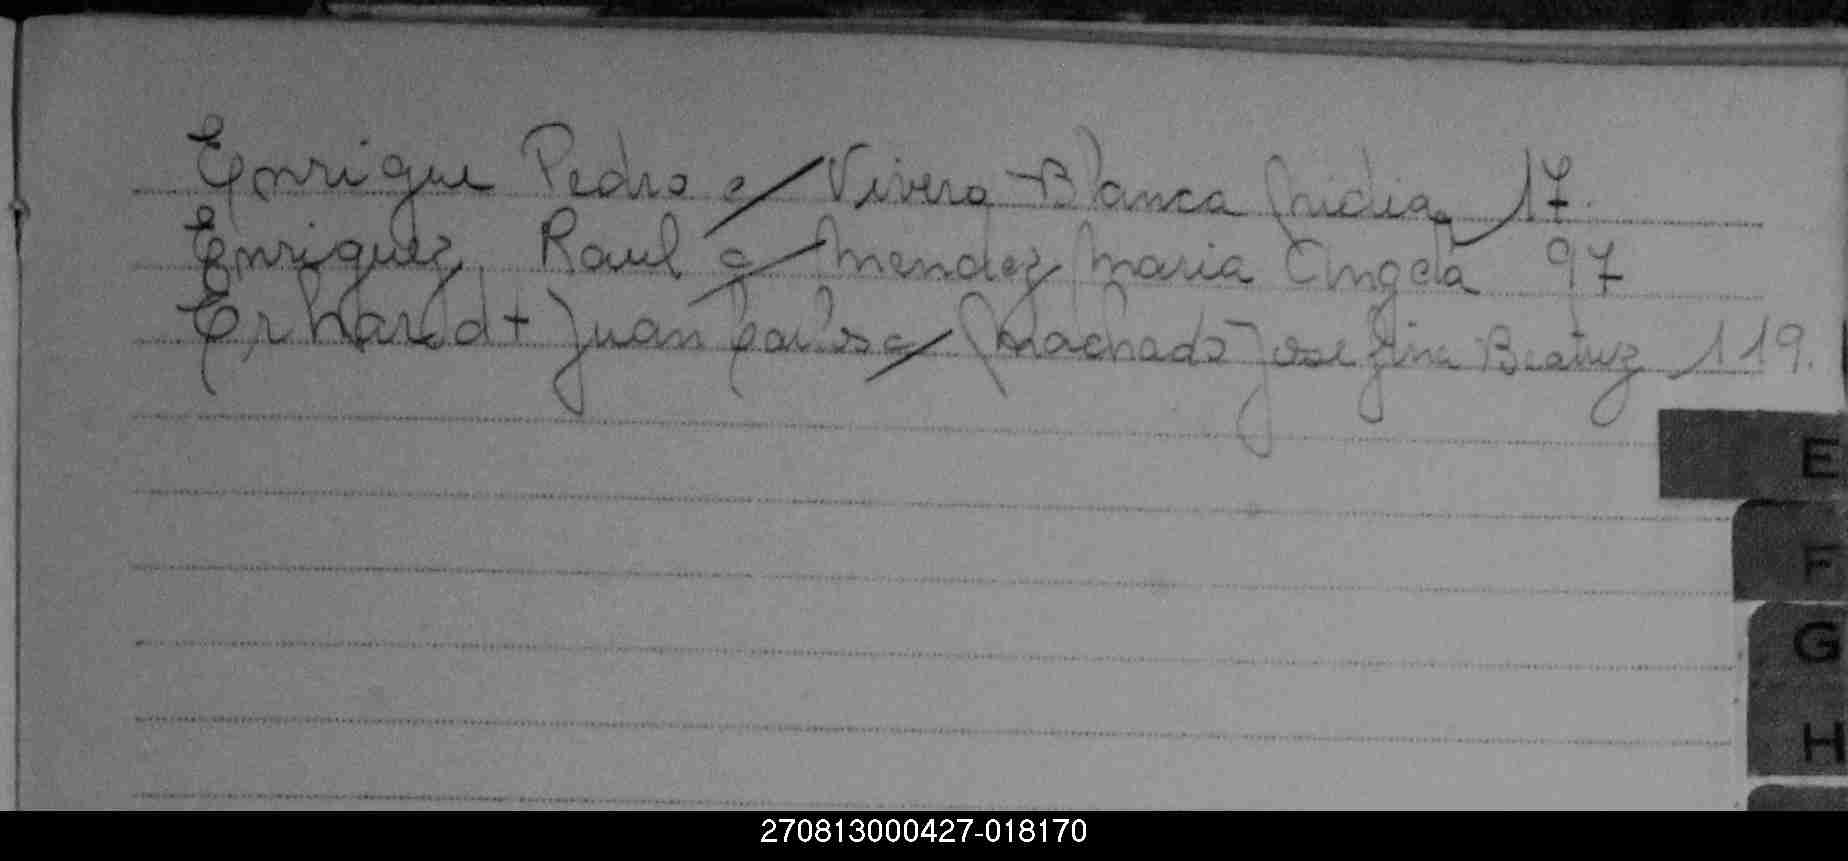 Enrique Pedro c/ Vivero Blanca Nidia 17.
Enriquez Raul c/ Mendez Maria Angela 97
Erhardt Juan Carlos c/ Machado Josefina Beatriz 119.
E
F
G
H
270813000427-018170